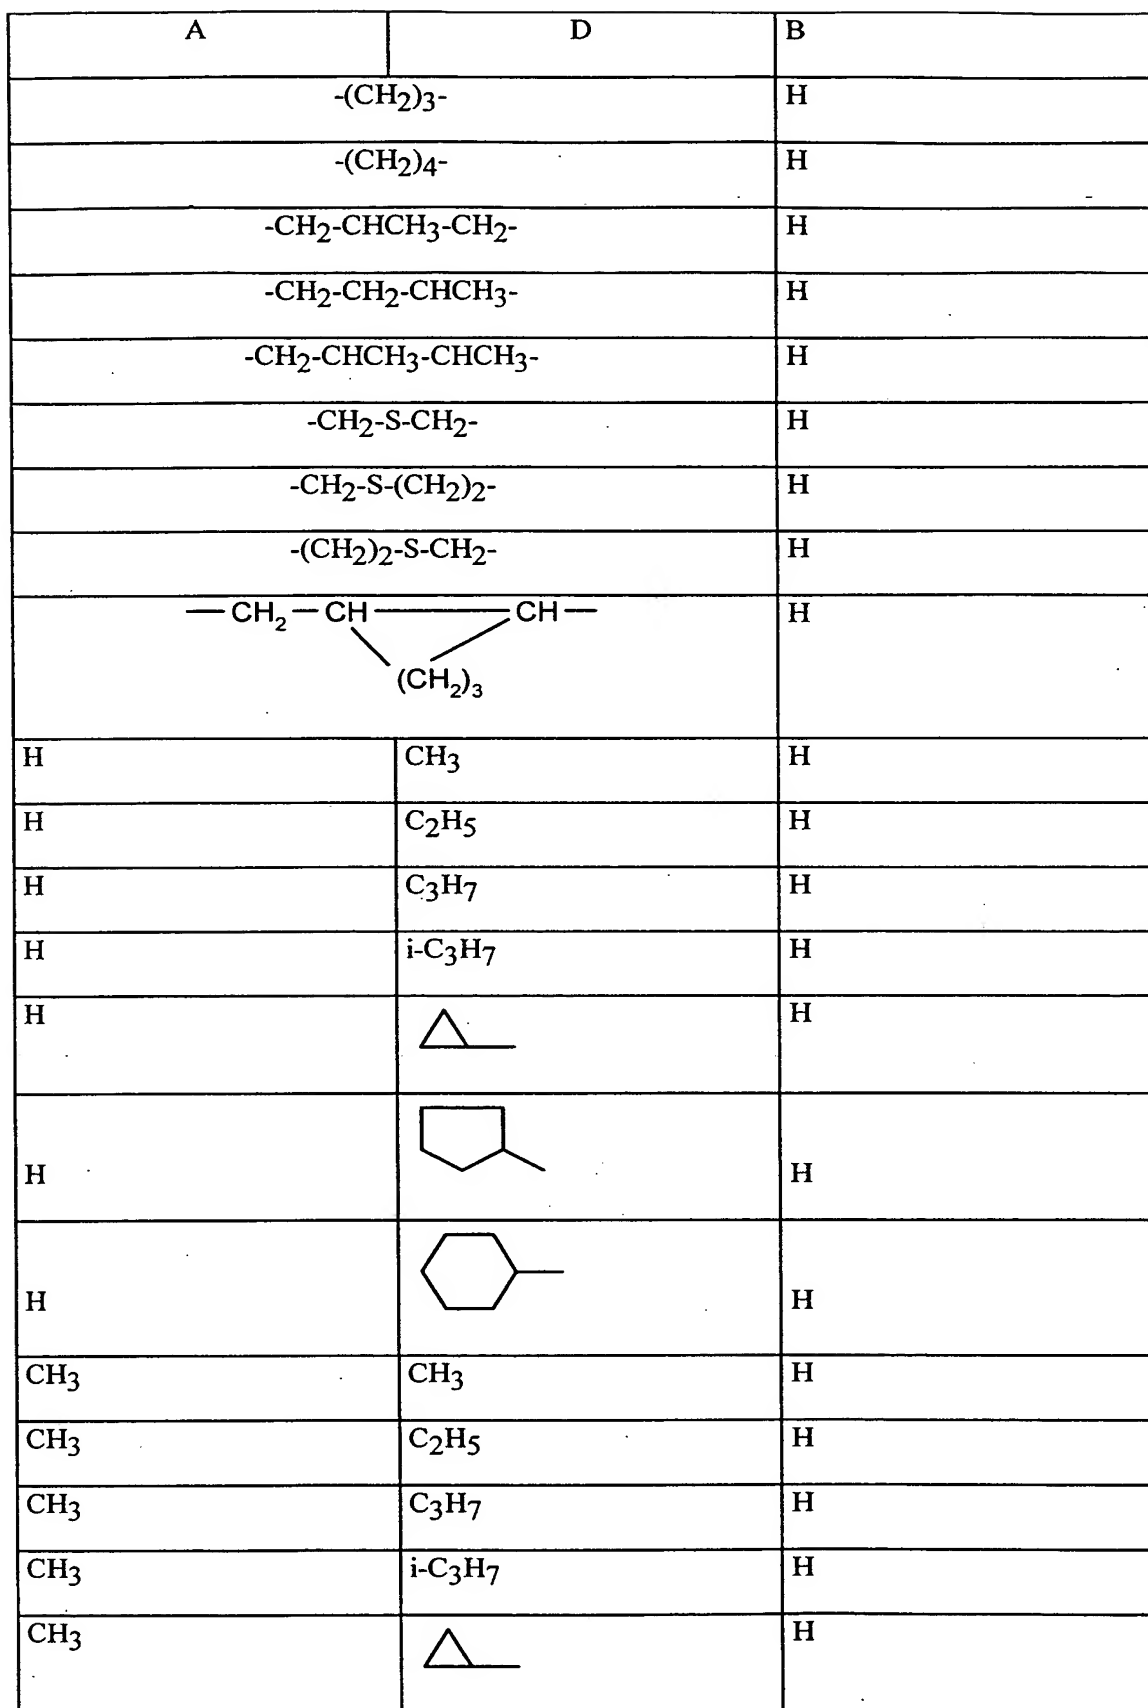 A D B
-(CH2)3- H
-(CH2)4- H
-CH2-CHCH3-CH2- H
-CH2-CH2-CHCH3- H
-CH2-CHCH3-CHCH3- H
-CH2-S-CH2- H
-CH2-S-(CH2)2- H
-(CH2)2-S-CH2- H
—CH2—CH—CH— H
(CH2)3
H CH3 H
H C2H5 H
H C3H7 H
H i-C3H7 H
H H
H H
H H
CH3 CH3 H
CH3 C2H5 H
CH3 C3H7 H
CH3 i-C3H7 H
CH3 H